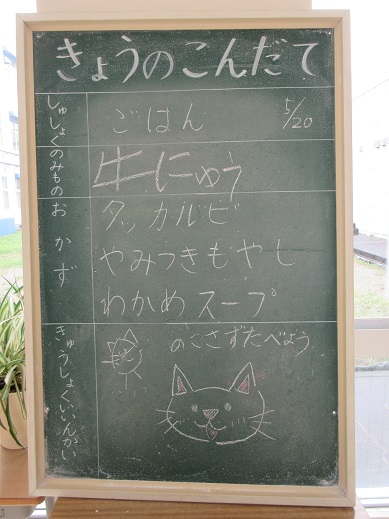 きょうのこんだて
しゅしょく ごはん 5/20
のみもの 牛にゅう
おかず タッカルビ
やみつきもやし
わかめスープ
きゅうしょくいいんかい のこさずたべよう